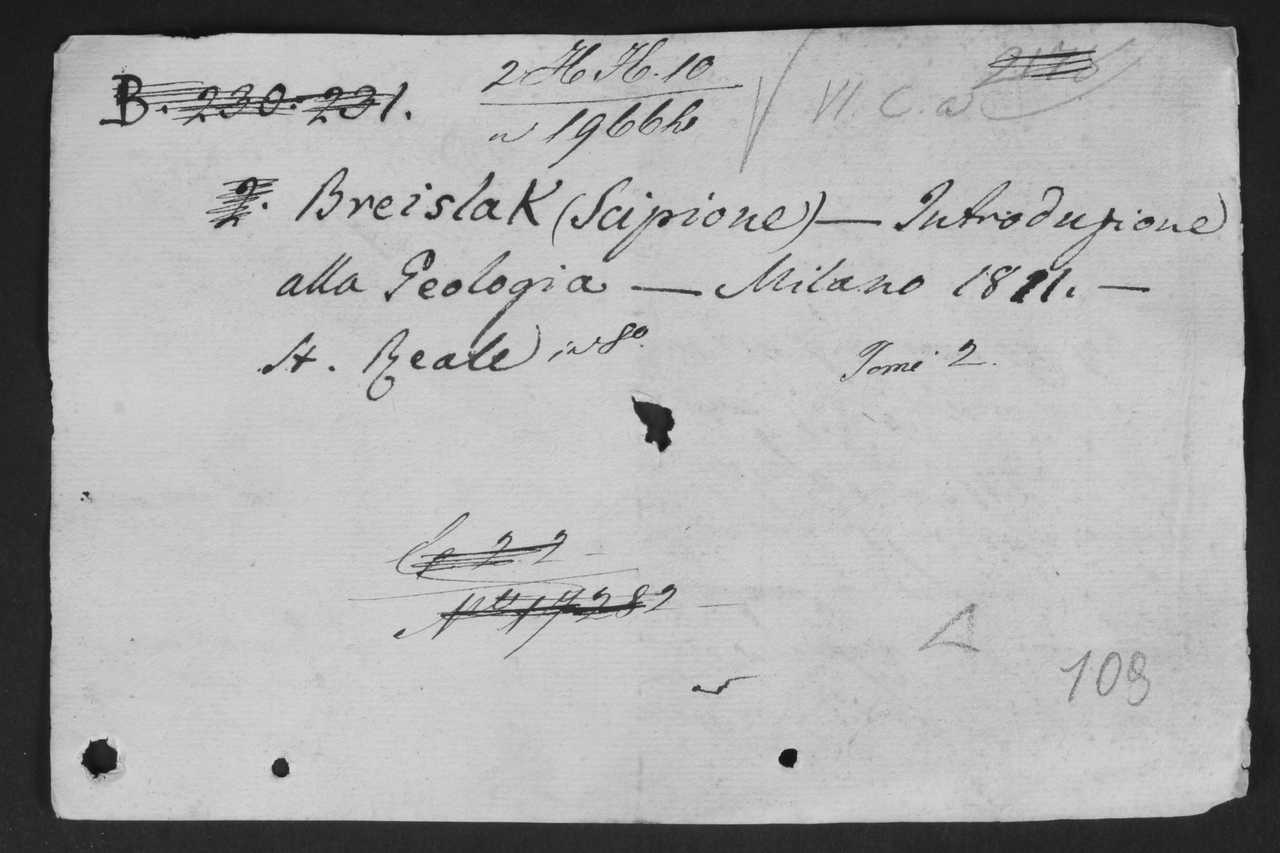 B. 230. 231.
2 H H. 10
19661
VI. C. a
2. Breislak (Scipione) — Introduzione
alla Geologia — Milano 1811. —
St. Reale in 8º.
Tomi 2.
2 2
17282
108